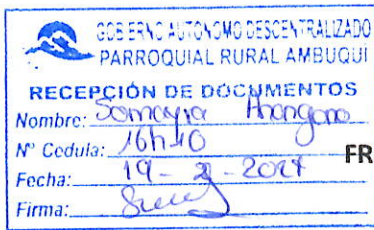 GOBIERNO AUTONOMO DESCENTRALIZADO
PARROQUIAL RURAL AMBUQUI
RECEPCIÓN DE DOCUMENTOS
Nombre:
N° Cedula: 16h10
FR
Fecha: 19 -
Firma: